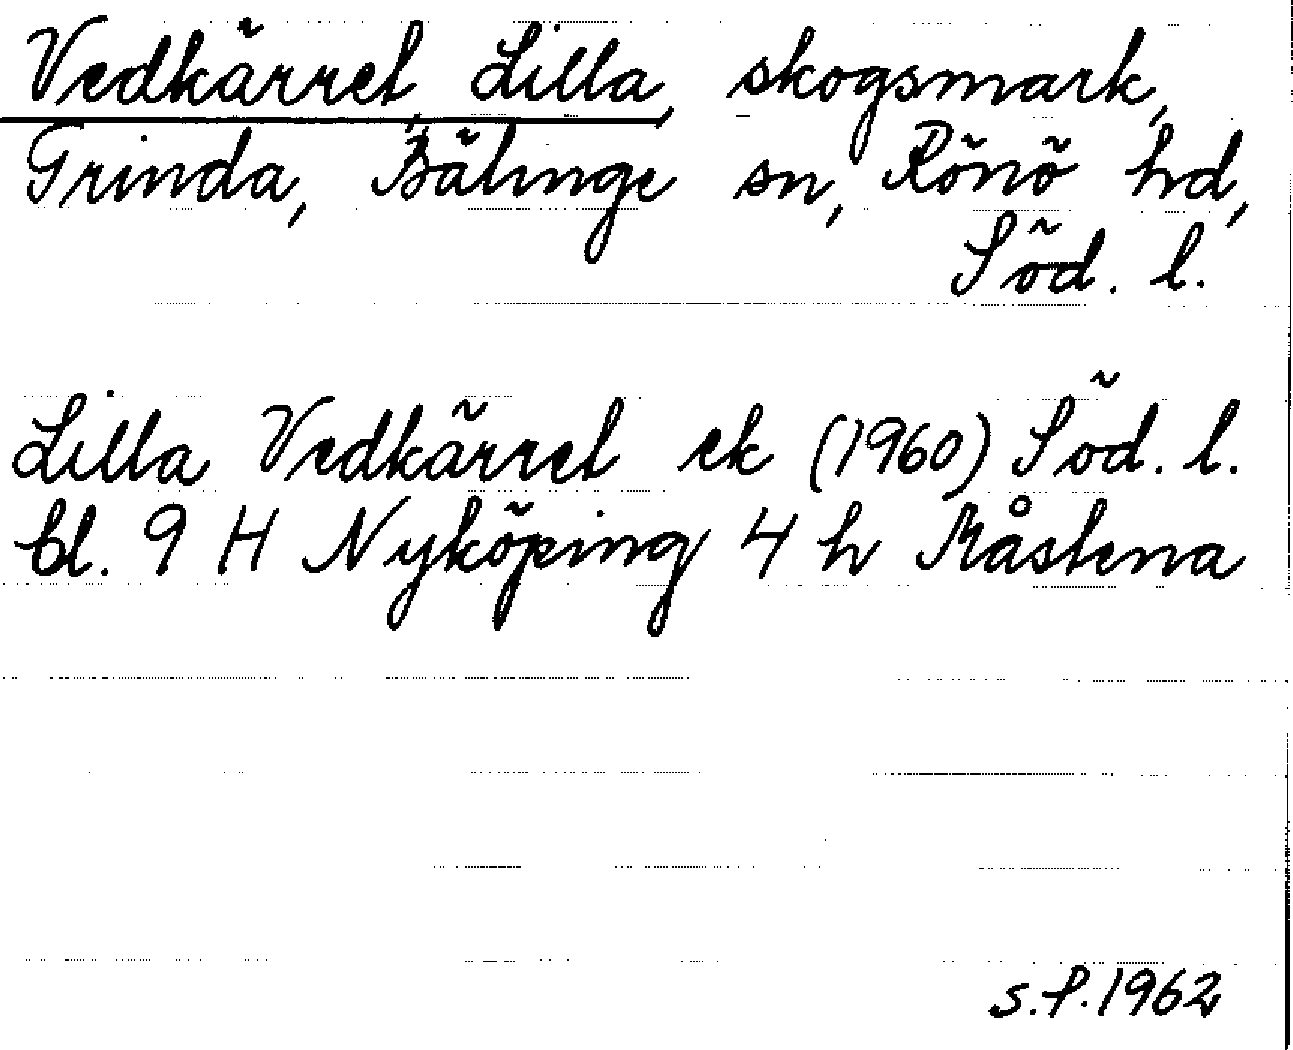 Vedkärret, Lilla, skogsmark,
Grinda, Bälinge sn, Rönö hd,
Söd. l.
Lilla Vedkärret ek (1960) Söd. l.
bl. 9 H Nyköping 4 h Råstena
S.P. 1962